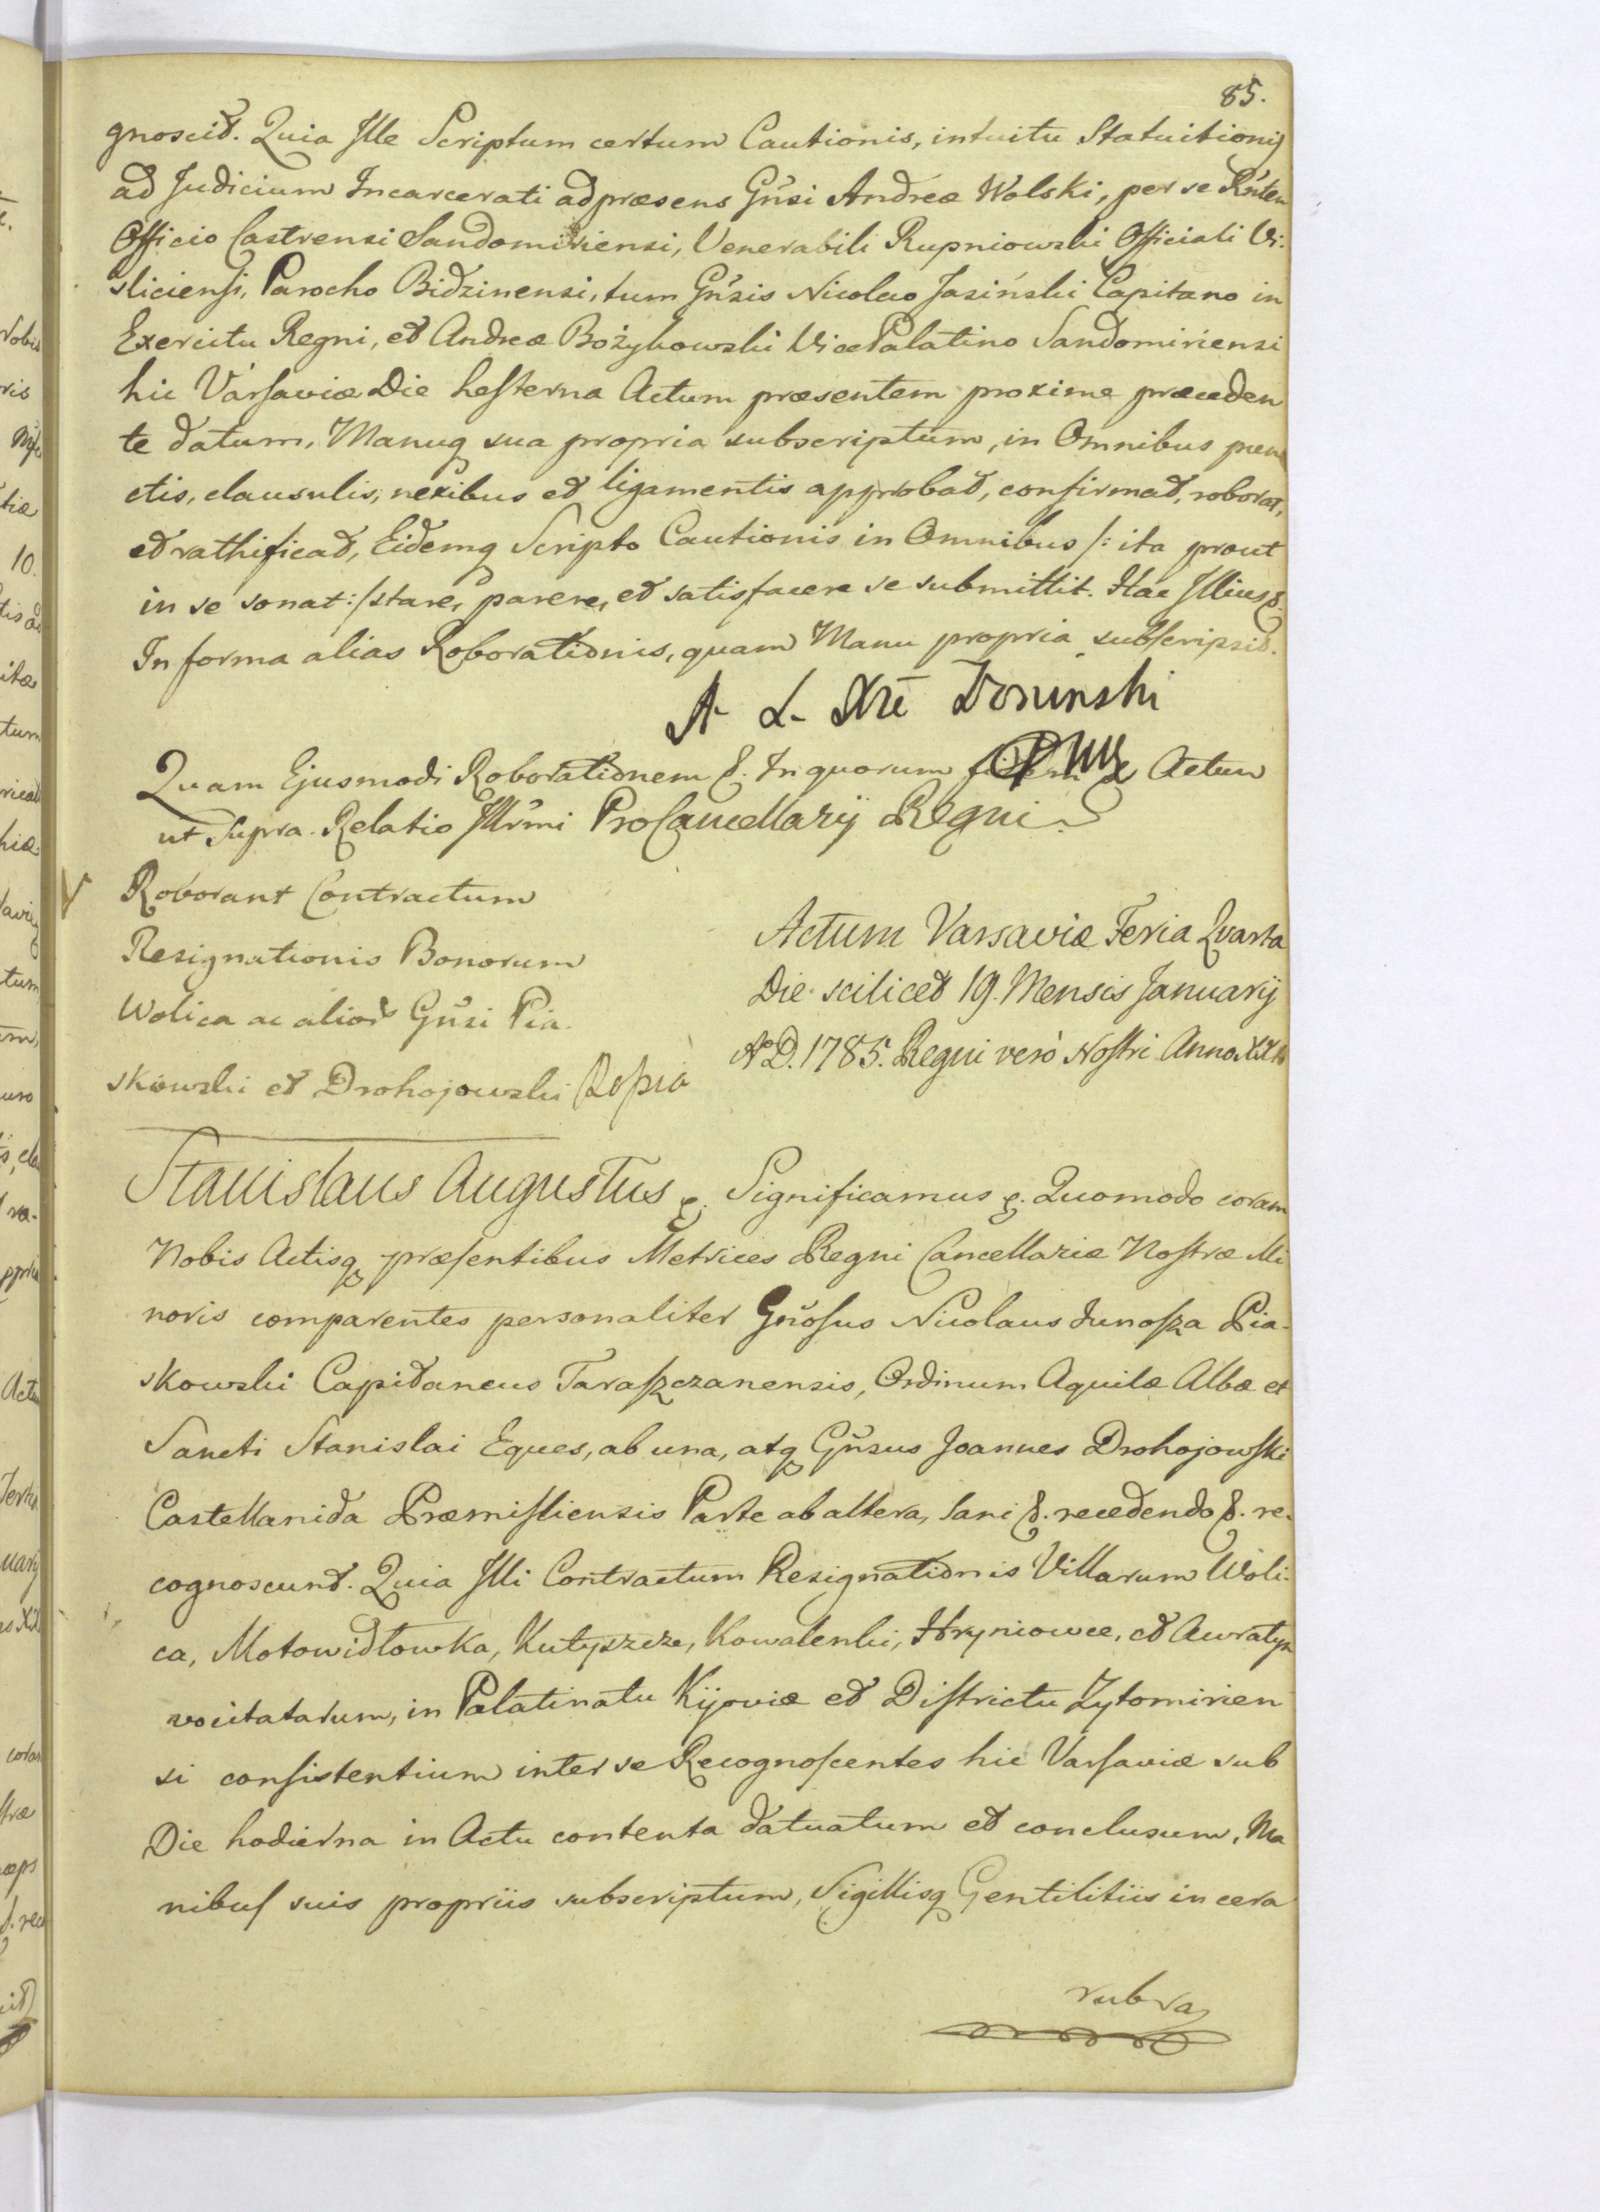 85.
gnoscit. Quia Ille Scriptum certum Cautionis, intuitu Statuitionis
ad Judicium Incarcerati ad præsens Gñsi Andreæ Wolski, per se Rñten
Officio Castrensi Sandomiriensi, Venerabili Rupniowski Officiali Vi-
sliciensi, Parocho Bidzinensi, tum Gñsis Nicolao Jasiński Capitano in
Exercitu Regni, et Andreæ Bożykowski Vice Palatino Sandomiriensi
hic Varsaviæ Die hesterna Actum præsentem proxime præceden
te datum, Manuq sua propria subscriptum, in Omnibus pun
ctis, clausulis, nexibus et ligamentis approbat, confirmat, roborat,
et rathificat, Eidemq Scripto Cautionis in Omnibus /: ita prout
in se sonat :/ stare, parere, et satisfacere se submittit. Hac Illius &.
In forma alias Roborationis, quam Manu propria subscripsit.
A L
Quam Ejusmodi Roborationem &. In quorum fidem & Actum
ut Supra. Relatio Illrmi ProCancellarij Regni.
Roborant Contractum
Resignationis Bonorum
Wolica ac alior Gñsi Pia-
skowski et Drohojowski
Actum Varsaviæ Feria Quarta
Die scilicet 19. Mensis Januarij
AoD. 1785. Regni verò Nostri Anno XXI
Stanislaus Augustus &. Significamus &. Quomodo coram
Nobis Actisq præsentibus Metrices Regni Cancellariæ Nostræ Mi
noris comparentes personaliter Gñosus Nicolaus Junosza Pia-
skowski Capitaneus Taraszczanensis, Ordinum Aquilæ Albæ et
Sancti Stanislai Eques, ab una, atq Gñsus Joannes Drohojowski
Castellanida Præmisliensis Parte ab altera, Sani &. recedendo &. re-
cognoscunt. Quia Illi Contractum Resignationis Villarum Woli-
ca, Motowidłowka, Kutyszcze, Kowalenki, Hryniowce, et Awratyn
vocitatarum, in Palatinatu Kijoviæ et Districtu Zytomirien
si consistentium inter se Recognoscentes hic Varsaviæ sub
Die hodierna in Actu contenta datuatum et conclusum, Ma
nibus suis propriis subscriptum, Sigillisq Gentilitiis in cera
rubra